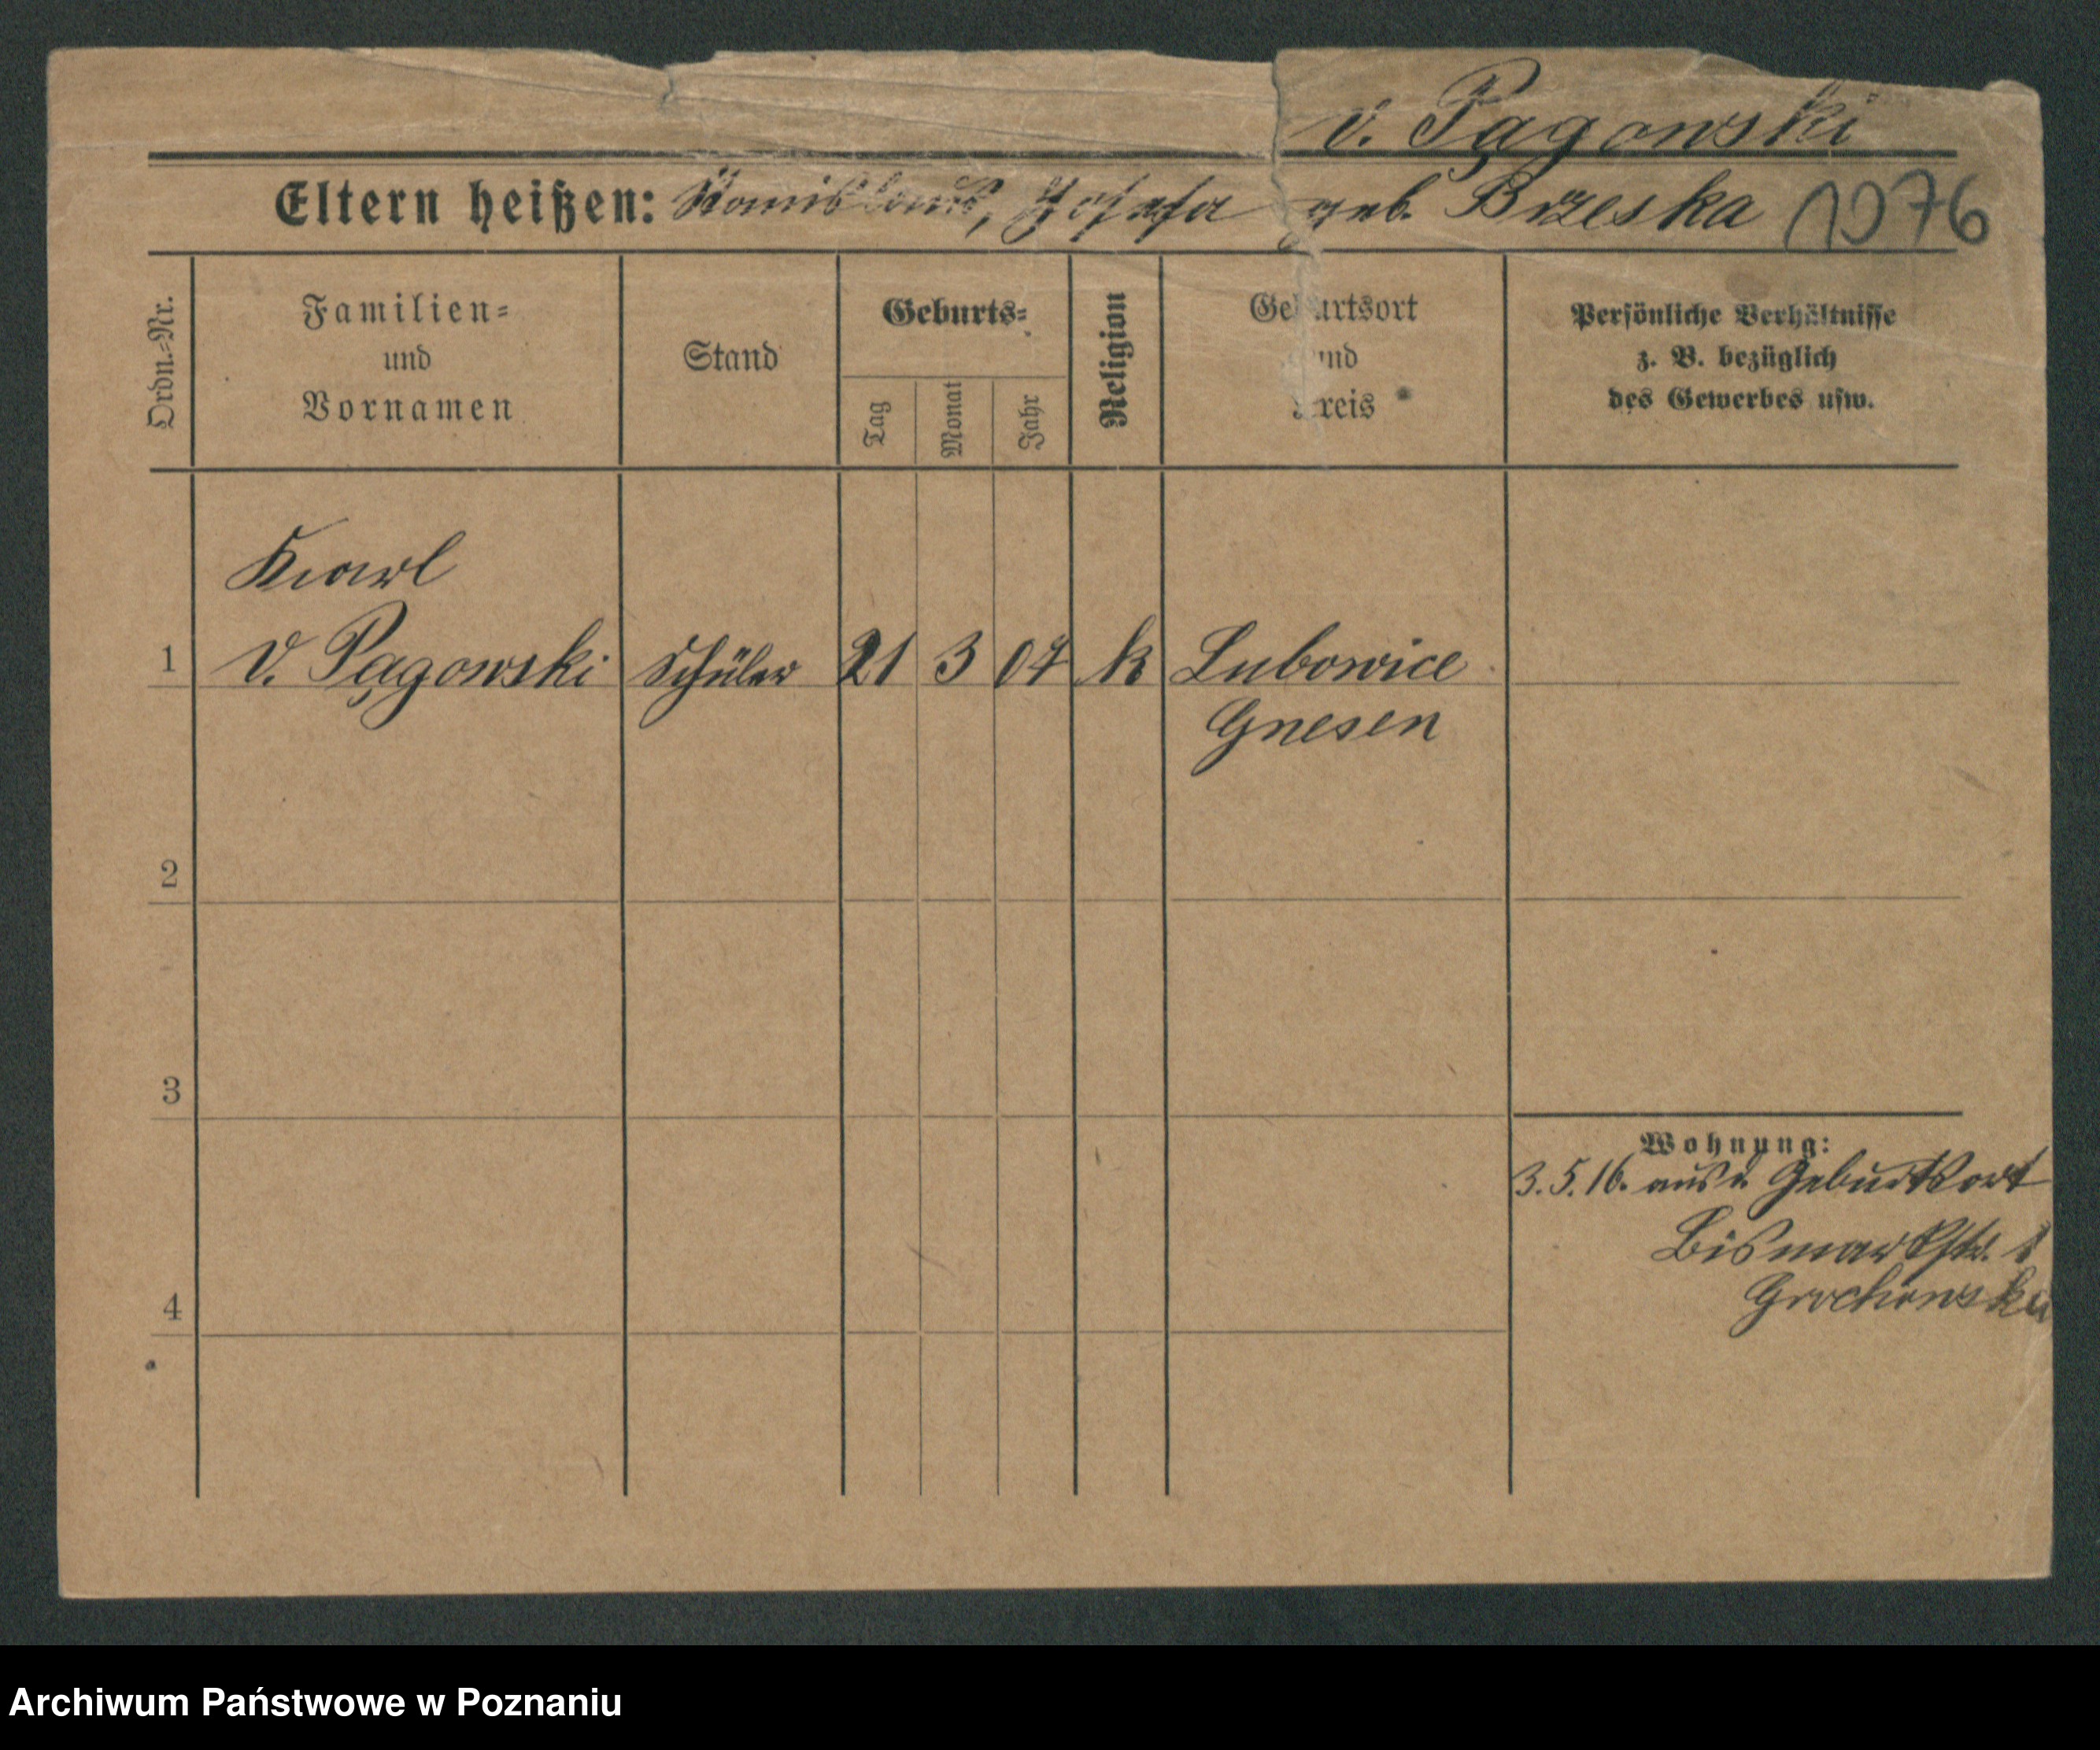 v. Pągowski
Eltern heißen: Stanislaus, Josefa geb. Brzeska 1076
Ordn.-Nr.
Familien-
und
Vornamen
Stand
Geburts-
Tag
Monat
Jahr
Religion
Geburtsort
und
Kreis
Persönliche Verhältnisse
z. B. bezüglich
des Gewerbes usw.
Karl
1 v. Pągowski Schüler 21 3 04 k Lubowice
Gnesen
2
3
Wohnung:
3.5.16. aus d. Geburtsort
Bismarkstr. 1
Grochowska
4
Archiwum Państwowe w Poznaniu